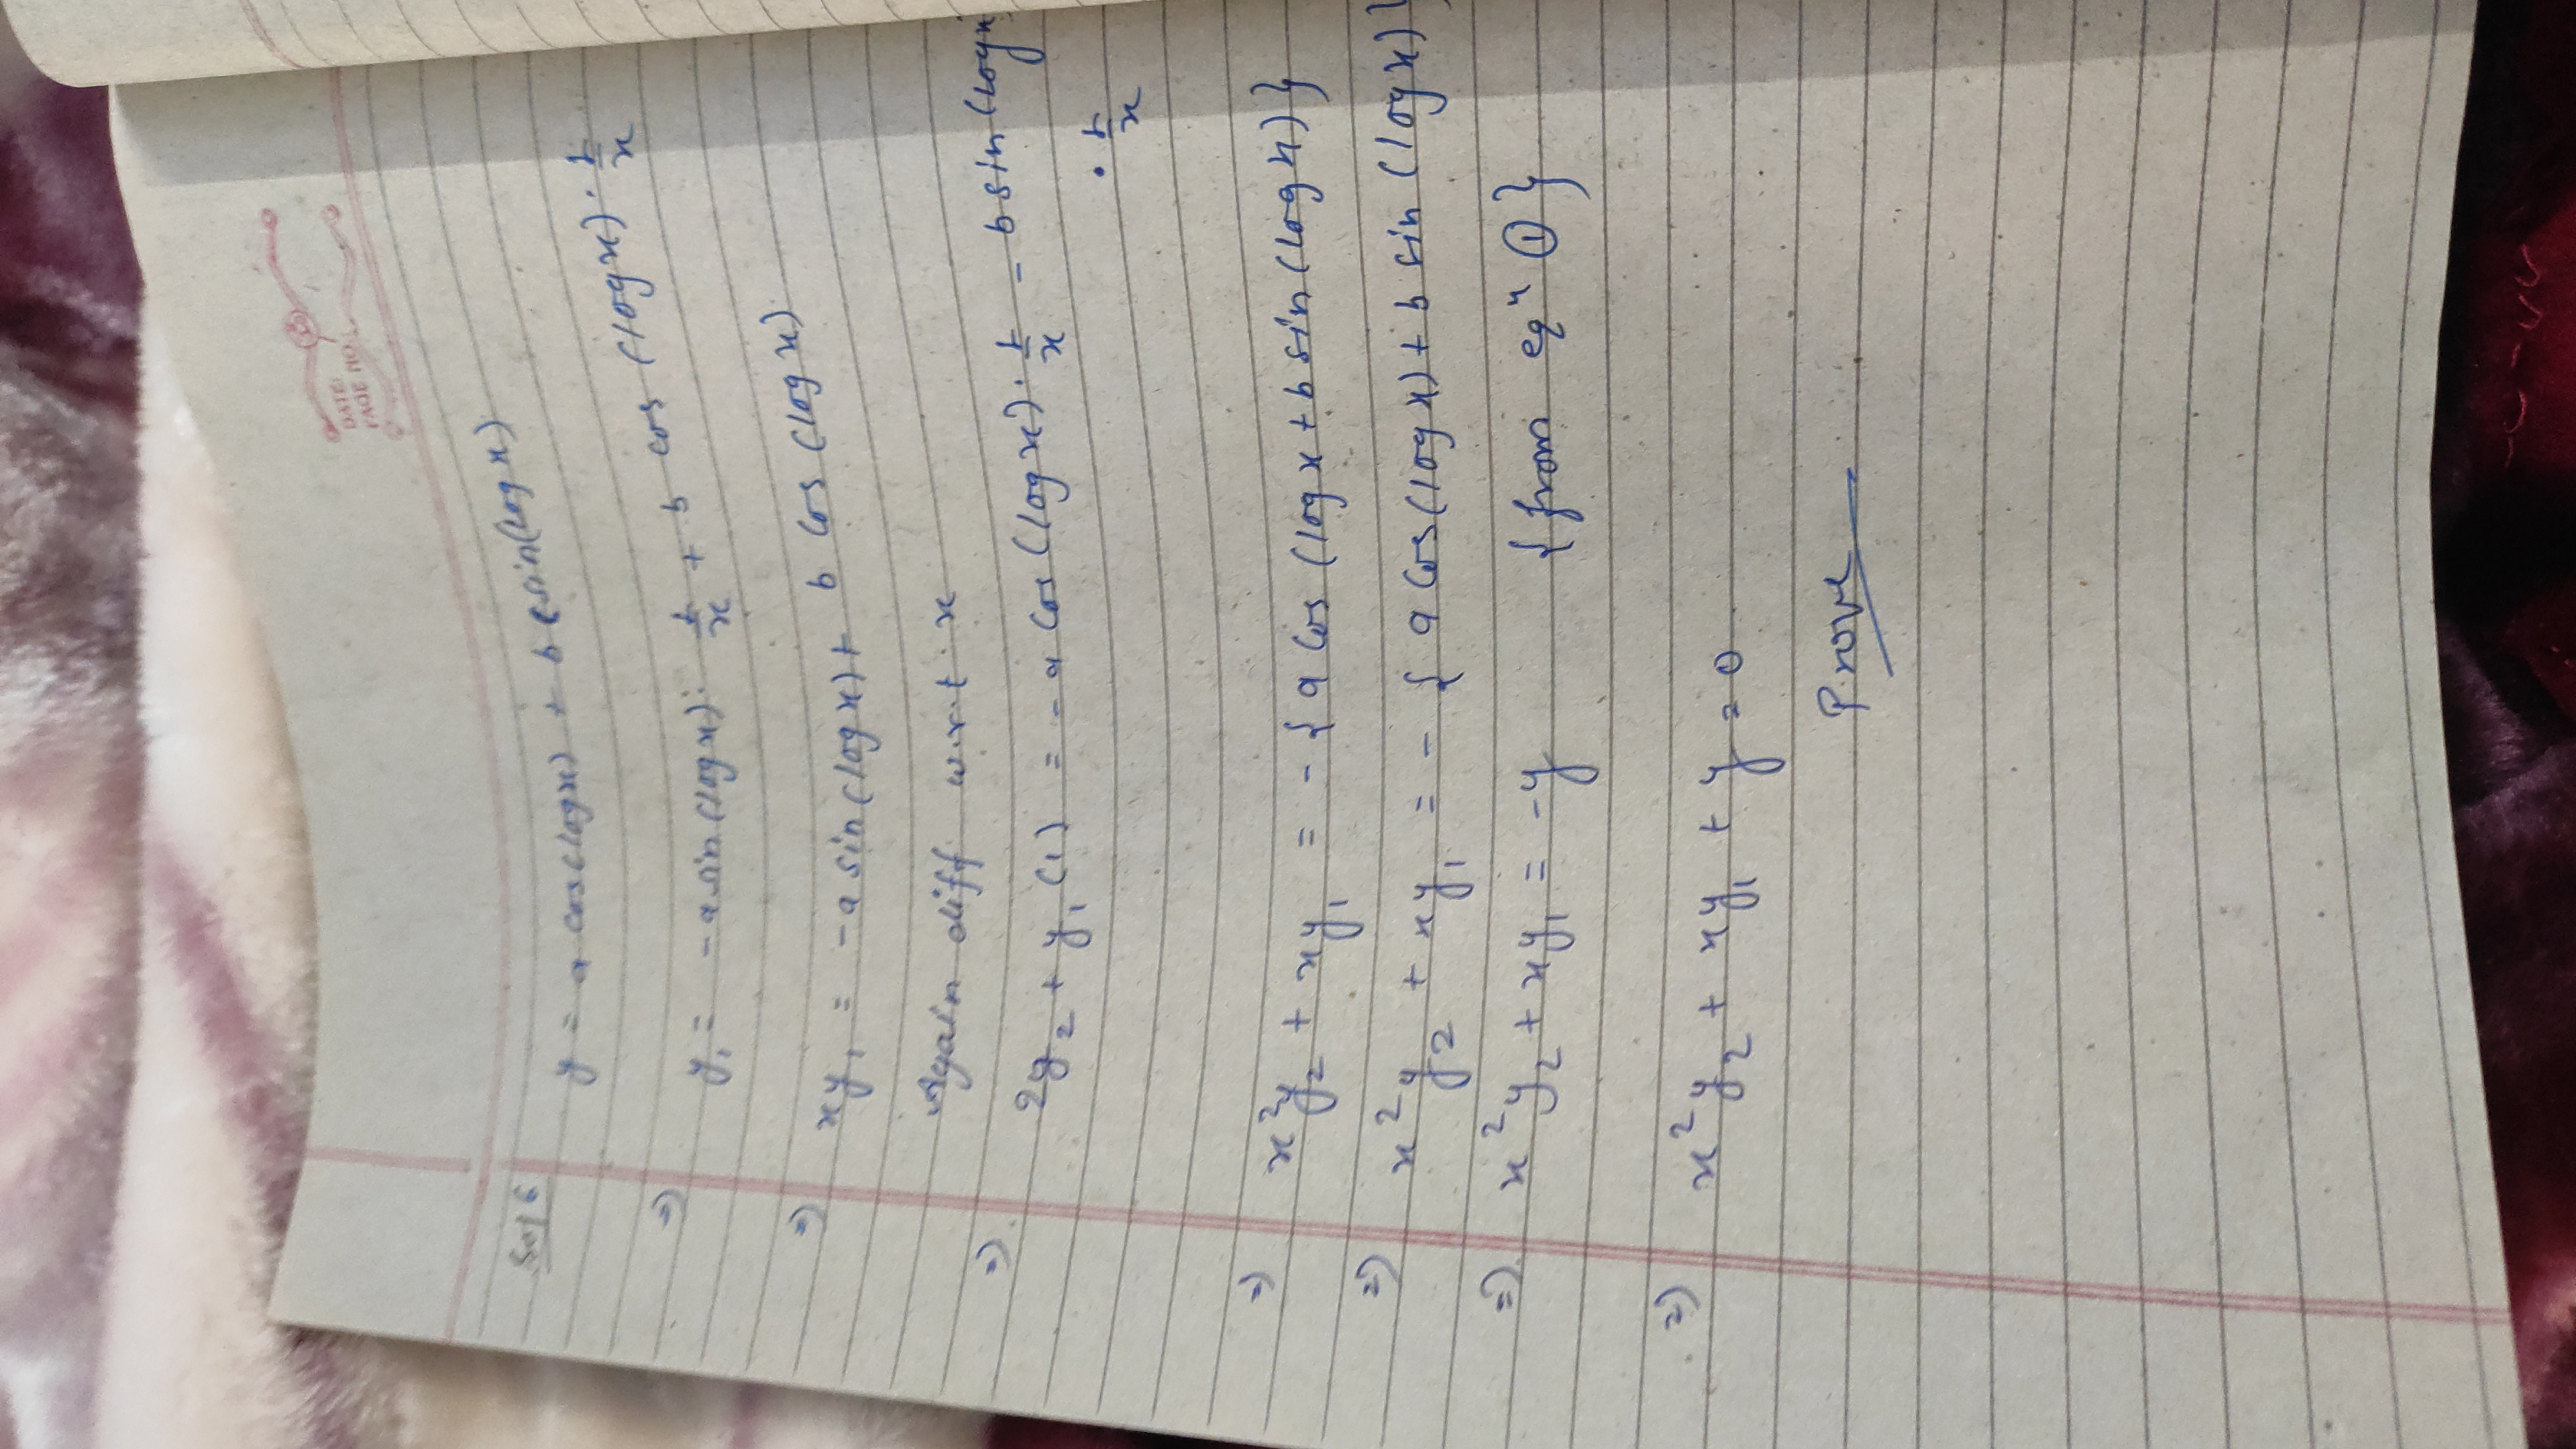 DATE:
PAGE NO.:
Sol 6
y = a cos(logx) + b sin(logx)
=> y₁ = -a sin(logx). 1/x + b cos (logx) . 1/x
=> xy₁ = -a sin(logx) + b cos (logx)
Again diff w.r.t. x
=> xy₂ + y₁ (1) = -a cos(logx). 1/x - b sin(logx
. 1/x
=> x²y₂ + xy₁ = - { a cos (logx + b sin(logx) }
=> x²y₂ + xy₁ = - { a cos(logx) + b sin (logx) }
=> x²y₂ + xy₁ = -y { from eqⁿ ① }
=> x²y₂ + xy₁ + y = 0
Prove